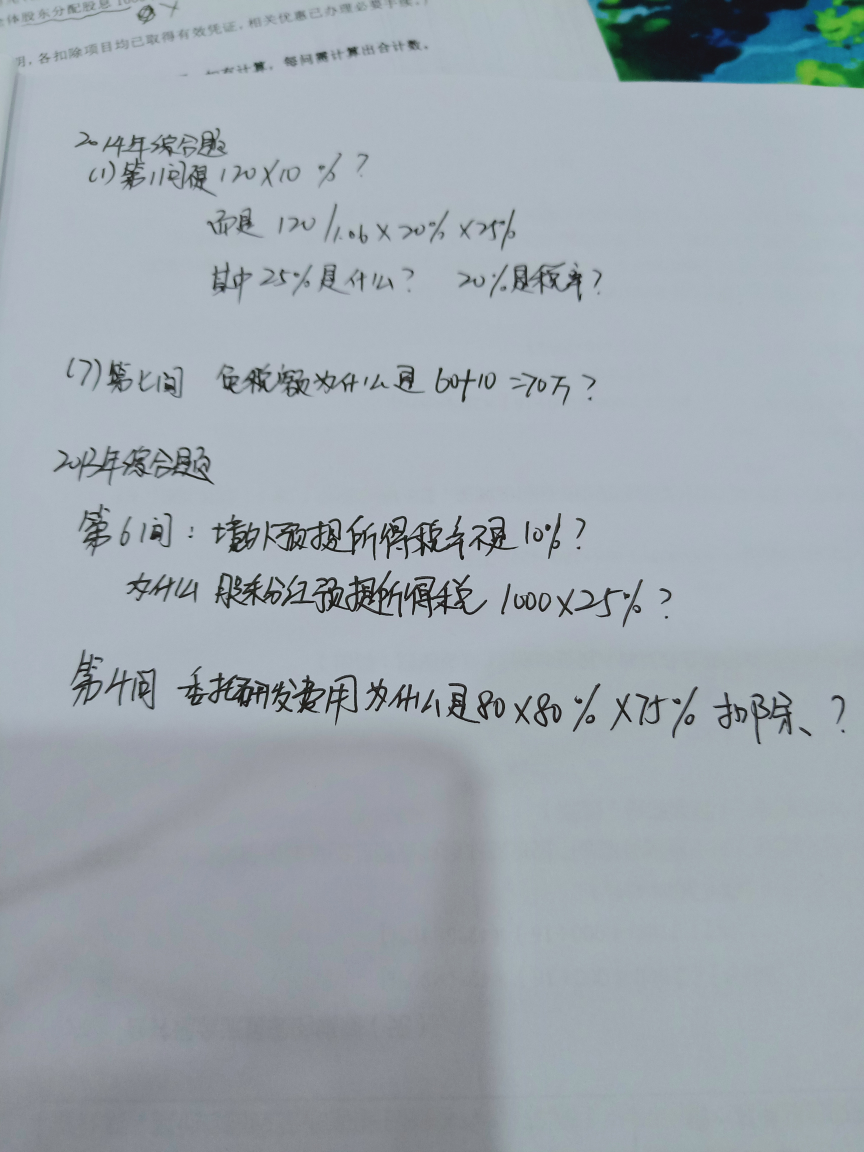 全体股东分配股息 100
明，各扣除项目均已取得有效凭证，相关优惠已办理必要手续。）
如有计算，每问需计算出合计数。
2014年综合题
(1)第1问是120×10%？
而是 120/1.06×20%×25%
其中25%是什么？ 20%是税率？
(7)第七问 免税额为什么是60+10=70万？
2013年综合题
第6问：境外预提所得税率不是10%？
为什么 股息分红预提所得税 1000×25%？
第4问 委托研发费用为什么是80×80%×75%扣除、？